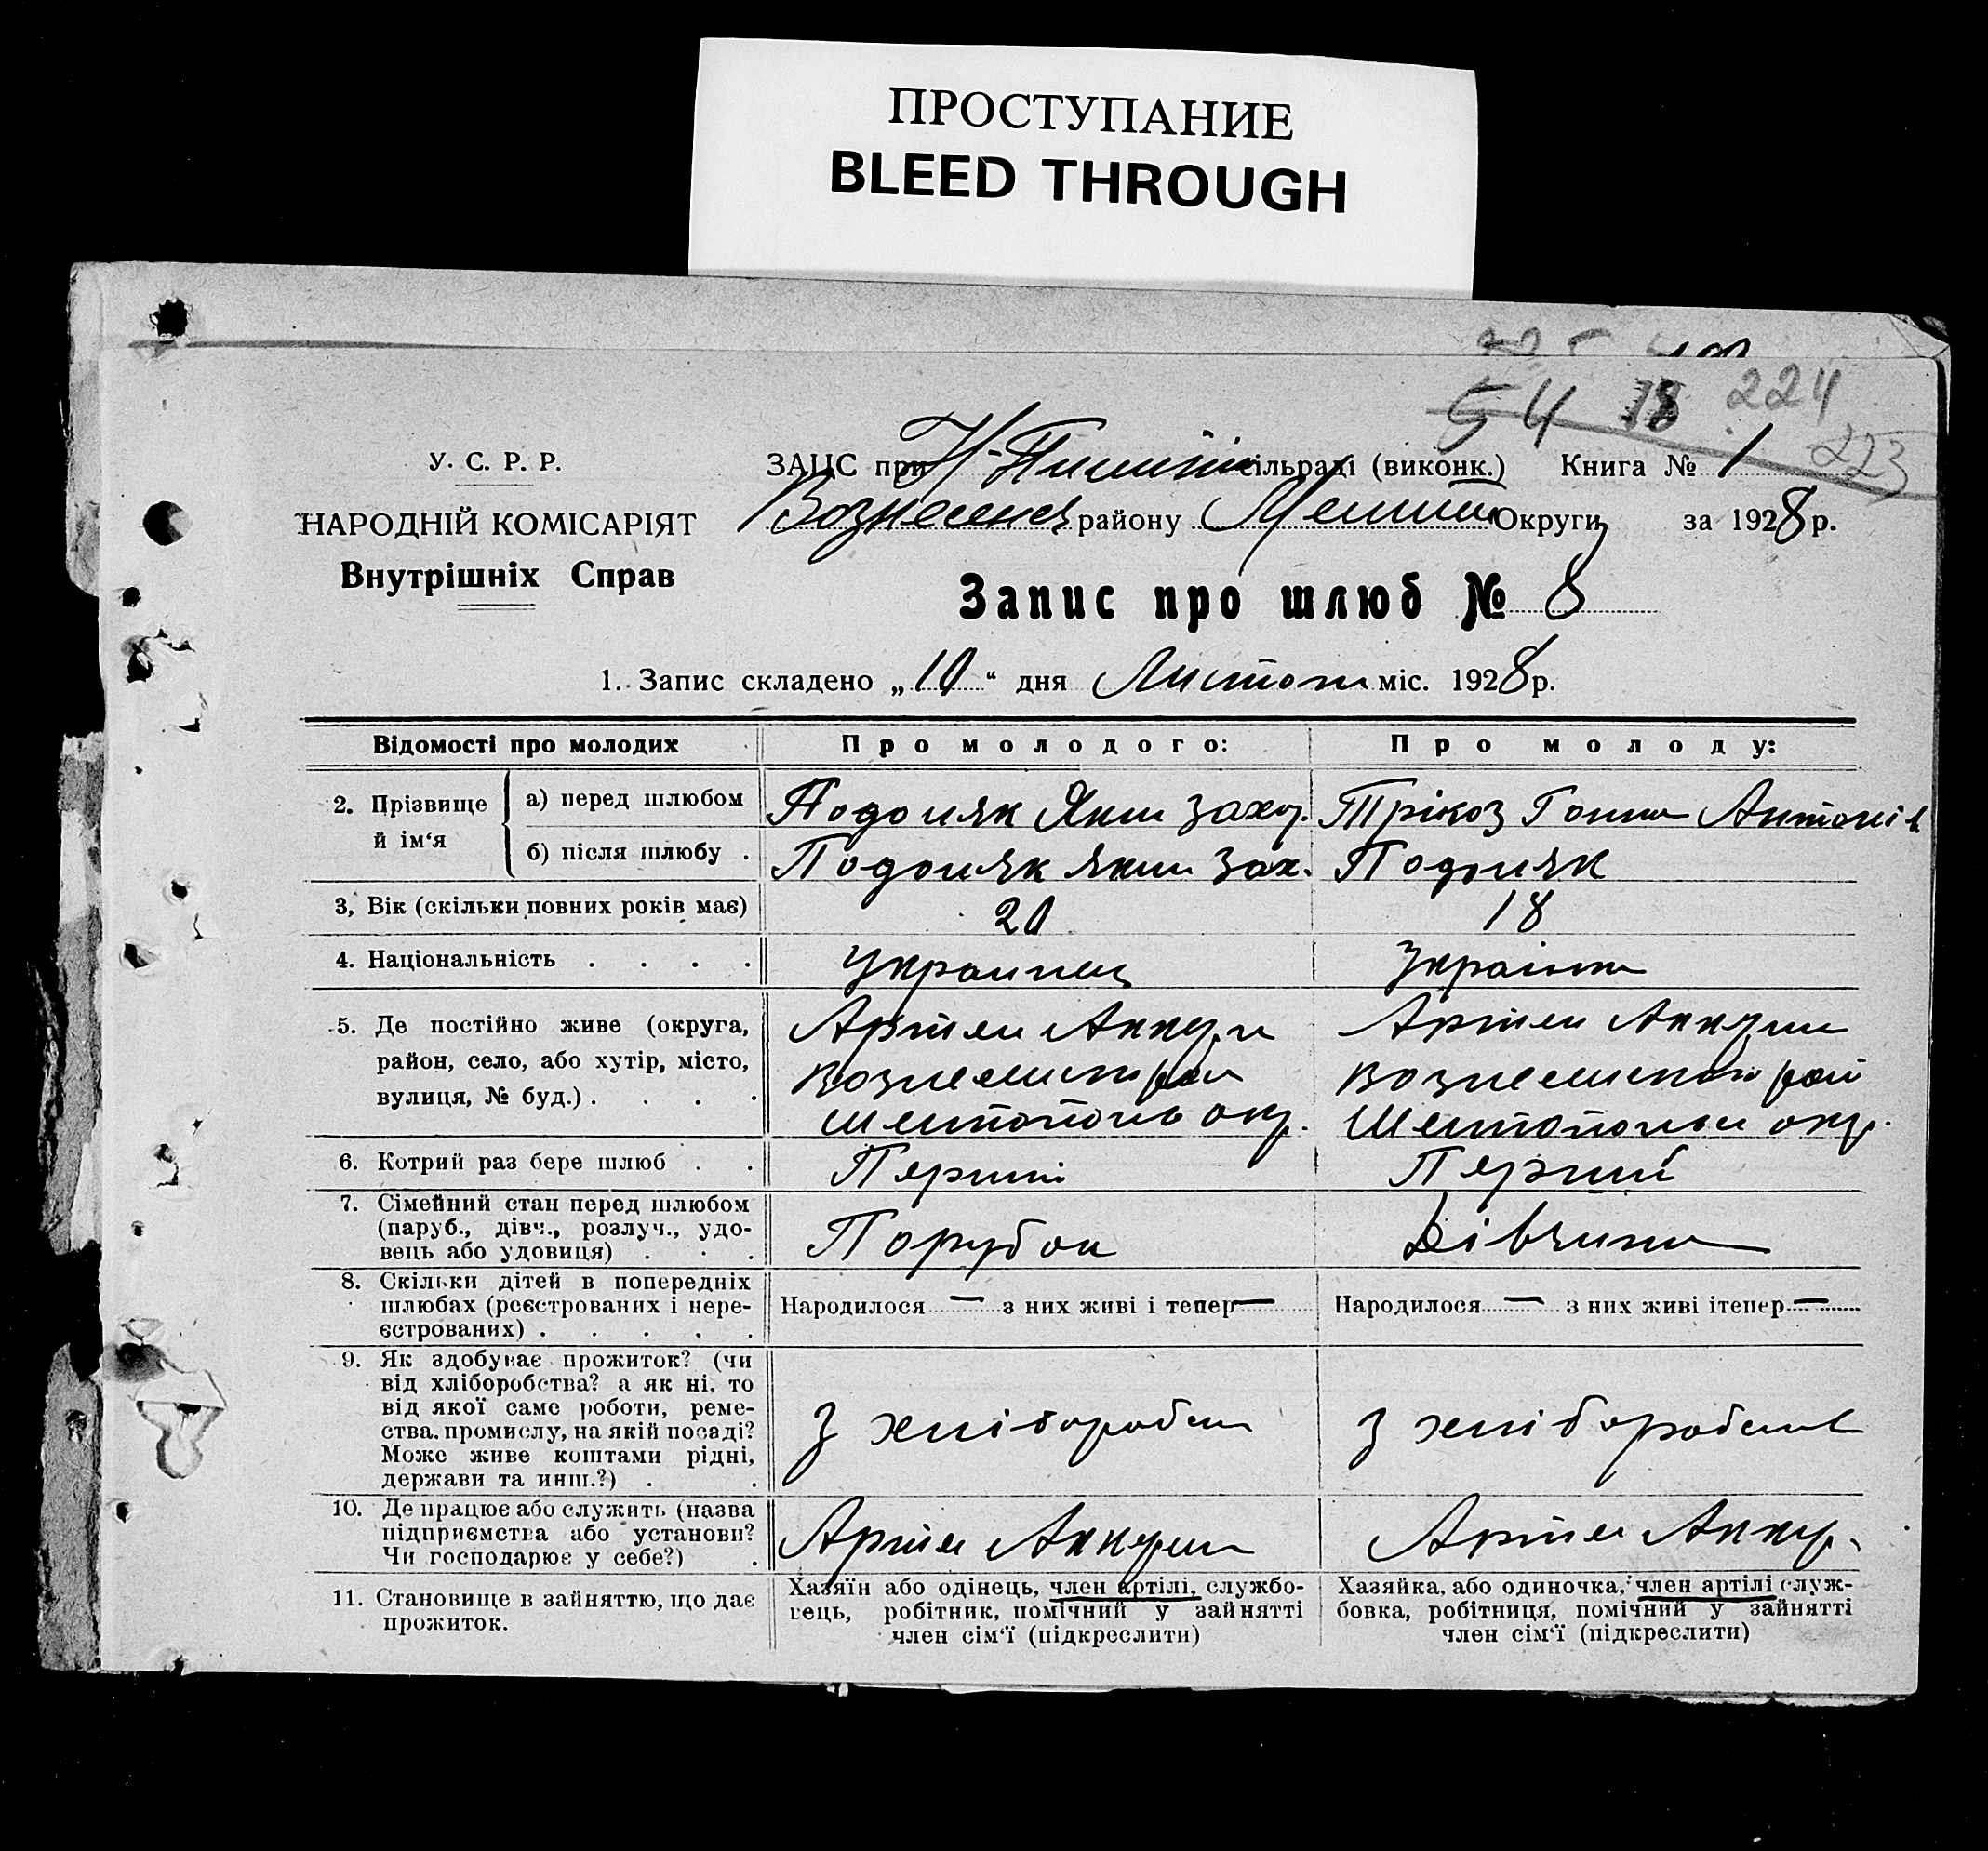 ПРОСТУПАНИЕ
BLEED THROUGH
54 18 224
223
У. С. Р. Р.
НАРОДНІЙ КОМІСАРІЯТ
Внутрішніх Справ
ЗАЦС при сільраді (виконк.) Книга № 1
району Округи за 1928 р.
Запис про шлюб № 8
1. Запис складено „10“ дня Листопа міс. 1928 р.
Відомості про молодих
Про молодого:
Про молоду:
2. Прізвище й ім‘я
а) перед шлюбом
Подоляк Яким Захар.
Трікоз Ганна Антонів
б) після шлюбу .
Подоляк Яким Зах.
Подоляк
3, Вік (скільки повних років має)
20
18
4. Національність . . . .
Украинец
Українка
5. Де постійно живе (округа,
район, село, або хутір, місто,
вулиця, № буд.) . . . .
Артіль
Артіль
6. Котрий раз бере шлюб . .
Перший
Перший
7. Сімейний стан перед шлюбом
(паруб., дівч., розлуч., удо-
вець або удовиця) . . .
Порубок
Дівчина
8. Скільки дітей в попередніх
шлюбах (реєстрованих і нере-
єстрованих) . . . . .
Народилося — з них живі і тепер —
Народилося — з них живі ітепер —
9. Як здобуває прожиток? (чи
від хліборобства? а як ні, то
від якої саме роботи, реме-
ства, промислу, на якій посаді?
Може живе коштами рідні,
держави та инш.?) . .
З хліборобст
З хліборобств
10. Де працює або служить (назва
підприємства або установи?
Чи господарює у себе?) .
Артіль
Артіль
11. Становище в зайняттю, що дає
прожиток.
Хазяїн або одінець, член артілі, службо-
вець, робітник, помічний у зайнятті
член сім‘ї (підкреслити)
Хазяйка, або одиночка, член артілі служ-
бовка, робітниця, помічний у зайнятті
член сім‘ї (підкреслити)